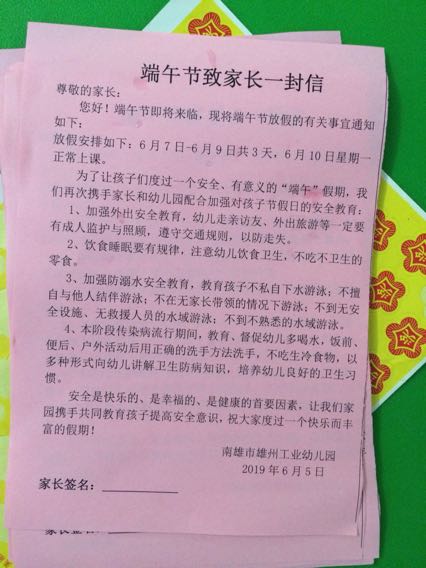 端午节致家长一封信
尊敬的家长：
您好！端午节即将来临，现将端午节放假的有关事宜通知
如下：
放假安排如下：6月7日-6月9日共3天，6月10日星期一
正常上课。
为了让孩子们度过一个安全、有意义的“端午”假期，我
们再次携手家长和幼儿园配合加强对孩子节假日的安全教育：
1、加强外出安全教育，幼儿走亲访友、外出旅游等一定要
有成人监护与照顾，遵守交通规则，以防走失。
2、饮食睡眠要有规律，注意幼儿饮食卫生，不吃不卫生的
零食。
3、加强防溺水安全教育，教育孩子不私自下水游泳；不擅
自与他人结伴游泳；不在无家长带领的情况下游泳；不到无安
全设施、无救援人员的水域游泳；不到不熟悉的水域游泳。
4、本阶段传染病流行期间，教育、督促幼儿多喝水，饭前、
便后、户外活动后用正确的洗手方法洗手，不吃生冷食物，以
多种形式向幼儿讲解卫生防病知识，培养幼儿良好的卫生习
惯。
安全是快乐的、是幸福的、是健康的首要因素，让我们家
园携手共同教育孩子提高安全意识，祝大家度过一个快乐而丰
富的假期！
南雄市雄州工业幼儿园
2019年6月5日
家长签名：